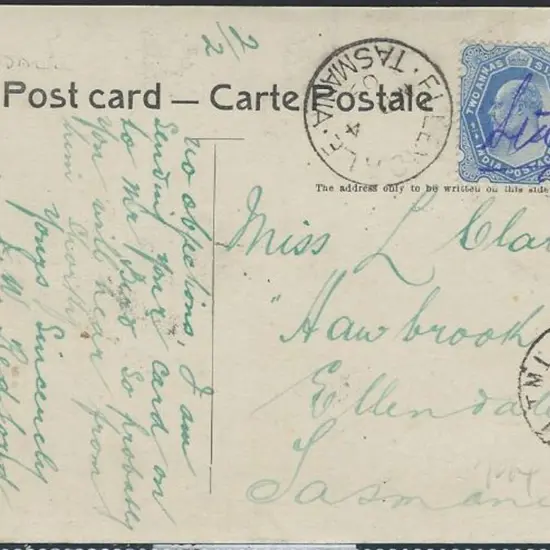 2/2
Post card — Carte Postale
ELLENDALE. TASMANIA
TWO ANNAS
INDIA POSTAGE
The address only to be written on this side
Miss L Clar
"Hawbrook
Ellendale
Tasmania
no objections, I am
sending your card on
to Mr Bird so probably
you will hear from
him shortly
Yours Sincerely
W. Ledford